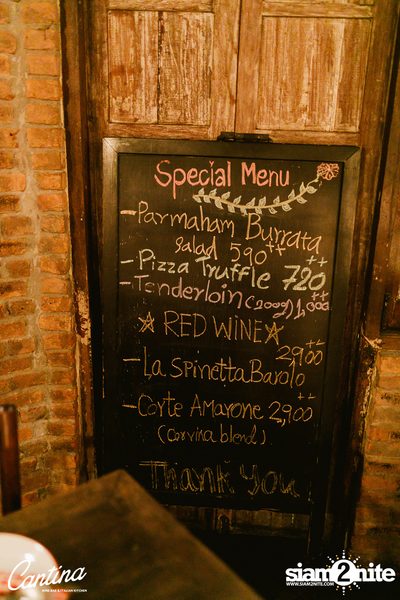 Special Menu
-Parmaham Burrata
salad 590++
-Pizza Truffle 720++
-Tenderloin (200g) 1,000++
☆ RED WINE ☆
2,900++
-La Spinetta Barolo
-Corte Amarone 2,900++
(corvina blend)
Thank You
Cantina
WINE BAR & ITALIAN KITCHEN
siam2nite
WWW.SIAM2NITE.COM